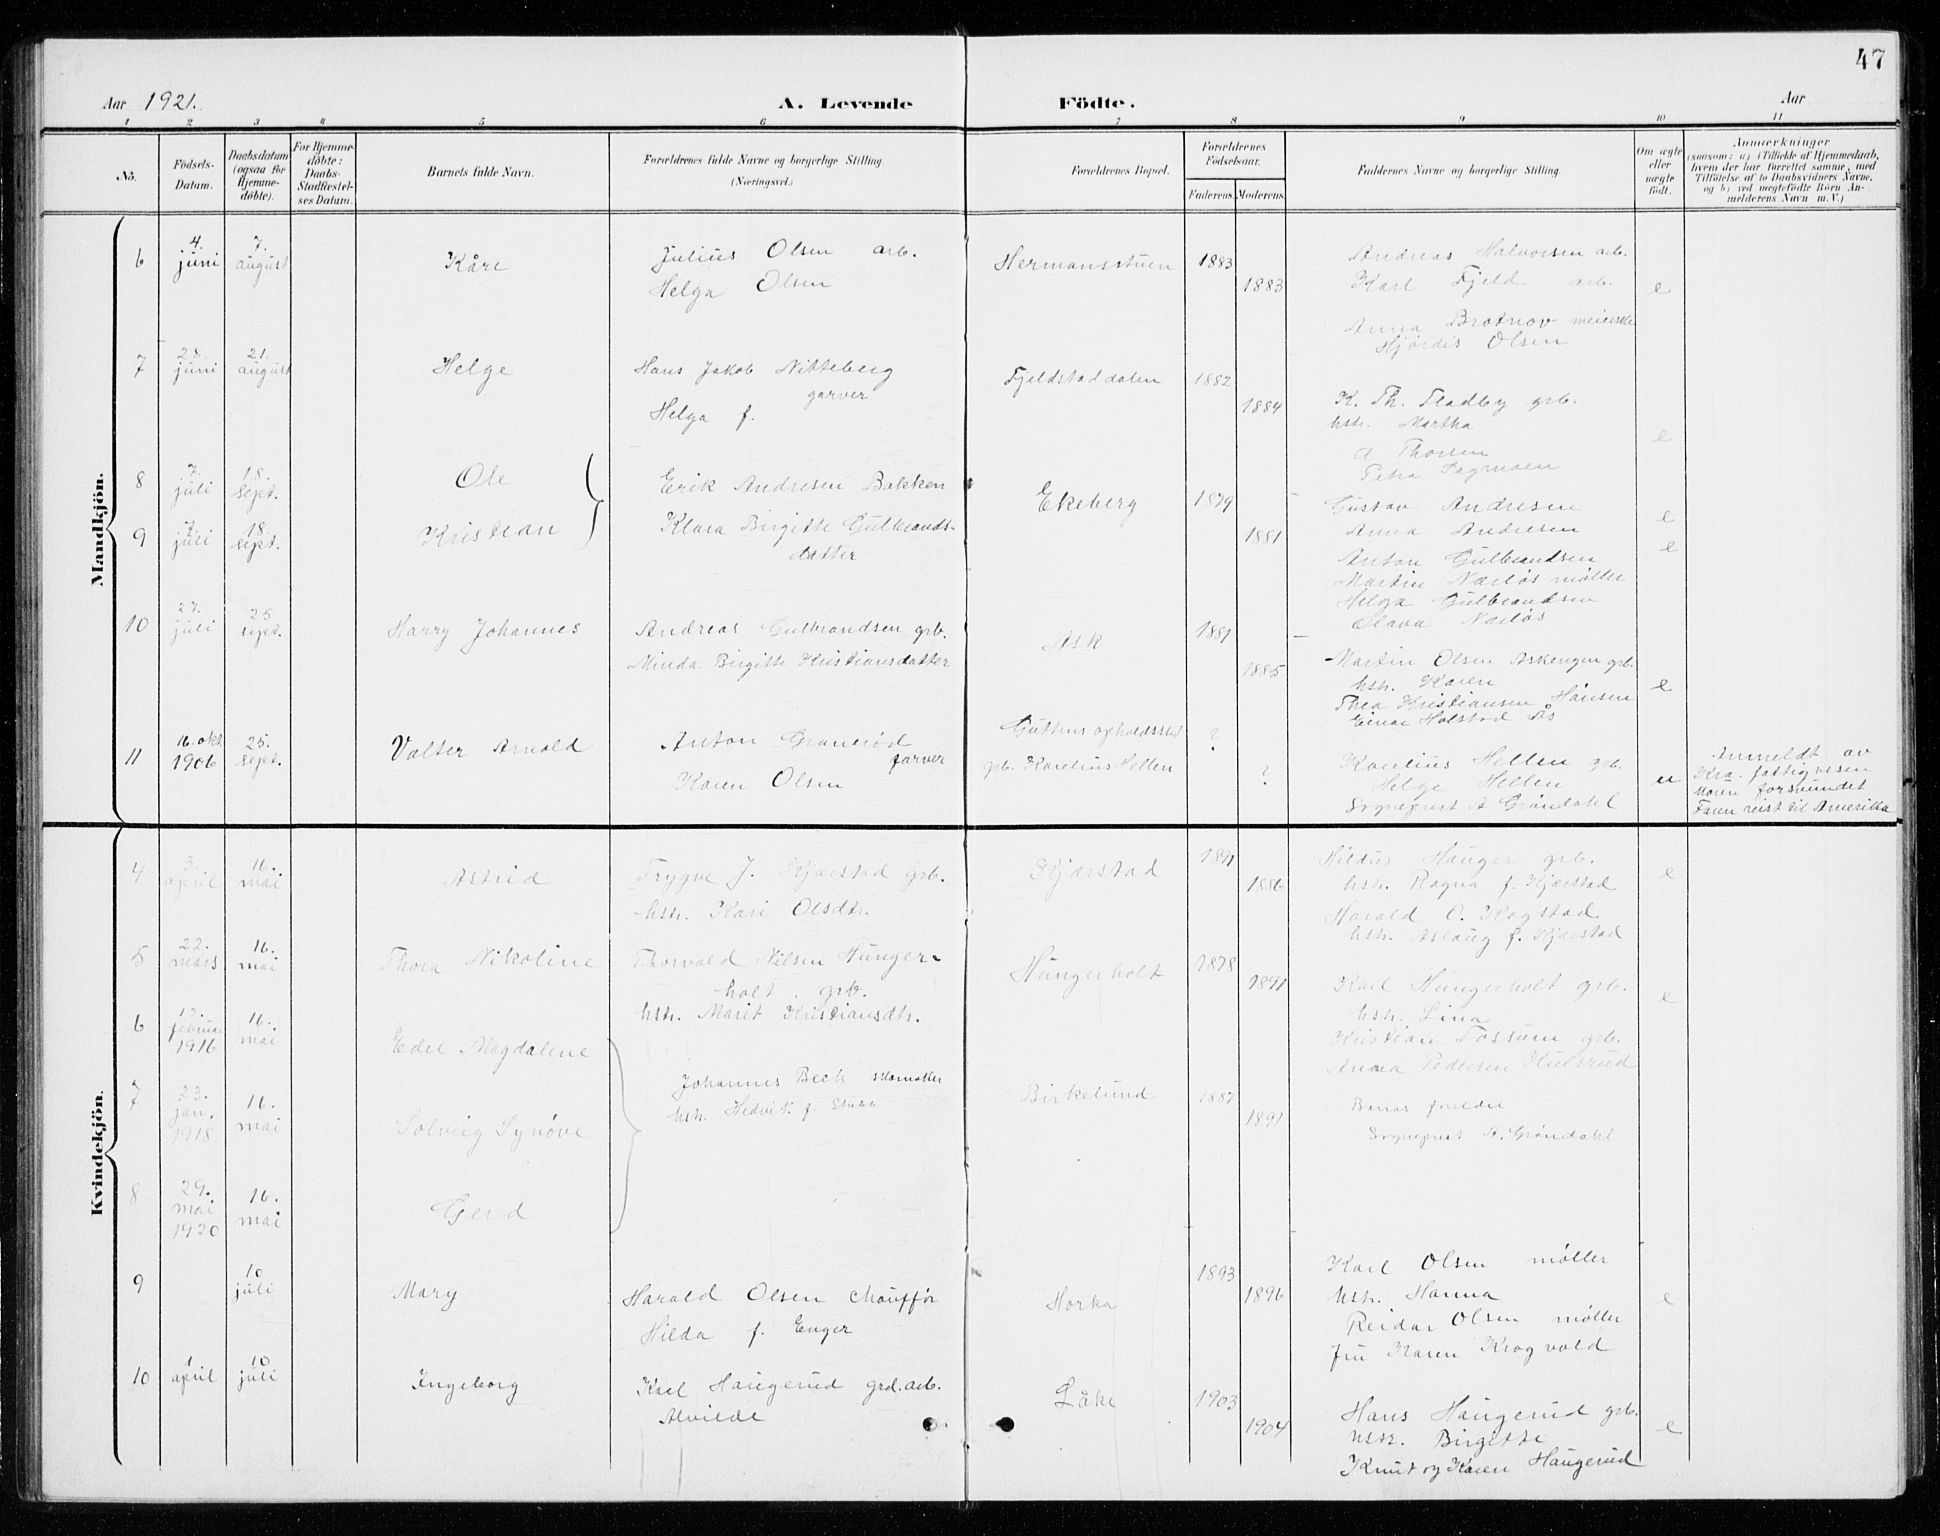 47
Aar 1921.
A. Levende Födte.
Aar
1 2 3 4 5 6 7 8 9 10 11
No.
Födsels-Datum.
Daabsdatum (ogsaa for Hjemmedöbte).
For Hjemmedöbte: Daabs-Stadfæstelses Datum.
Barnets fulde Navn.
Forældrenes fulde Navne og borgerlige Stilling. (Næringsvei.)
Forældrenes Bopæl.
Forældrenes Födselsaar.
Faderens Moderens
Faddernes Navne og borgerlige Stilling.
Om ægte eller uægte födt.
Anmærkninger
(saasom: a) i Tilfælde af Hjemmedaab, hvem der har forrettet samme, med Tilföielse af to Daabsvidners Navne, og b) ved uægtefödte Börn Anmelderens Navn m. V.)
Mandkjön.
6 4. juni 7. august Kåre
Julius Olsen arb.
Helga Olsen
Hermansstuen 1883 1883
Andreas Halvorsen arb.
Karl Fjeld arb.
Anna Brotnov
Hjørdis Olsen
e
7 28. juni 21. august Helge
Hans Jakob Nitteberg
garver
Helga f.
Fjeldstaddalen 1882 1884
K. Th. Fladby grb.
hstr. Martha
A Thorsen
Petra
e
8 7. juli 18. sept. Ole
9 7. juli 18. sept. Kristian
Erik Andresen Bakken
Klara Birgitte Gulbrands-
datter
Ekeberg 1879 1881
Gustav Andresen
Anna Andresen
Anton Gulbrandsen
Martin Nærløs møller
Helga Gulbrandsen
Olava Nærløs
e
e
10 27. juli 25 sept. Harry Johannes
Andreas Gulbrandsen grb.
Minda Birgitte Kristiansdatter
Ask 1881 1885
Martin Olsen Askengen grb.
hstr. Karen
Thea Kristiansen Hansen
Einar Holstad Ås
e
11 16. okt. 1906 25. sept. Valter Arnold
Anton Granerød
farver
Karen Olsen
Guttens opholdssted
grb. Karelius Hellen
? ?
Karelius Hellen grb.
Helge Hellen
Sogneprest A Grøndahl
u
Anmeldt av
Kra. fattigvesen
Moren forsvundet
Faren reist til Amerika
Kvindekjön.
4 3. april 16. mai Astrid
Trygve J. Kjærstad grb.
hstr. Kari Olsdtr.
Kjærstad 1891 1886
Hildus Hauger grb.
hstr. Ragna f. Kjærstad
Harald O. Kogstad
hstr. Aslaug f. Kjærstad
e
5 22. mars 16. mai Thora Nikoline
Thorvald Nilsen Hunger-
holt grb.
hstr. Marit Kristiansdtr.
Hungerholt 1878 1891
Karl Hungerholt grb.
hstr. Lina
Kristian Fossum grb.
Anna Pedersen Kulsrud
e
6 12. februar 1916 16. mai Edel Magdalene
7 23. jan. 1918 16. mai Solveig Synøve
8 29. mai 1920 16. mai Gerd
Johannes Bech skomaker
hstr. Hedvik f. Stubb
Birkelund 1887 1891
Barnas foreldre
Sogneprest A. Grøndahl
9 10 juli Mary
Harald Olsen chauffør
Hilda f. Enger
Horka 1893 1896
Karl Olsen møller
hstr. Hanna
Reidar Olsen møller
fru Karen Krogvold
e
10 1 april 10 juli Ingeborg
Karl Haugerud grd.arb.
Alvilde
Låke 1903 1904
Hans Haugerud grb.
hstr. Birgitte
Knut og Karen Haugerud
e